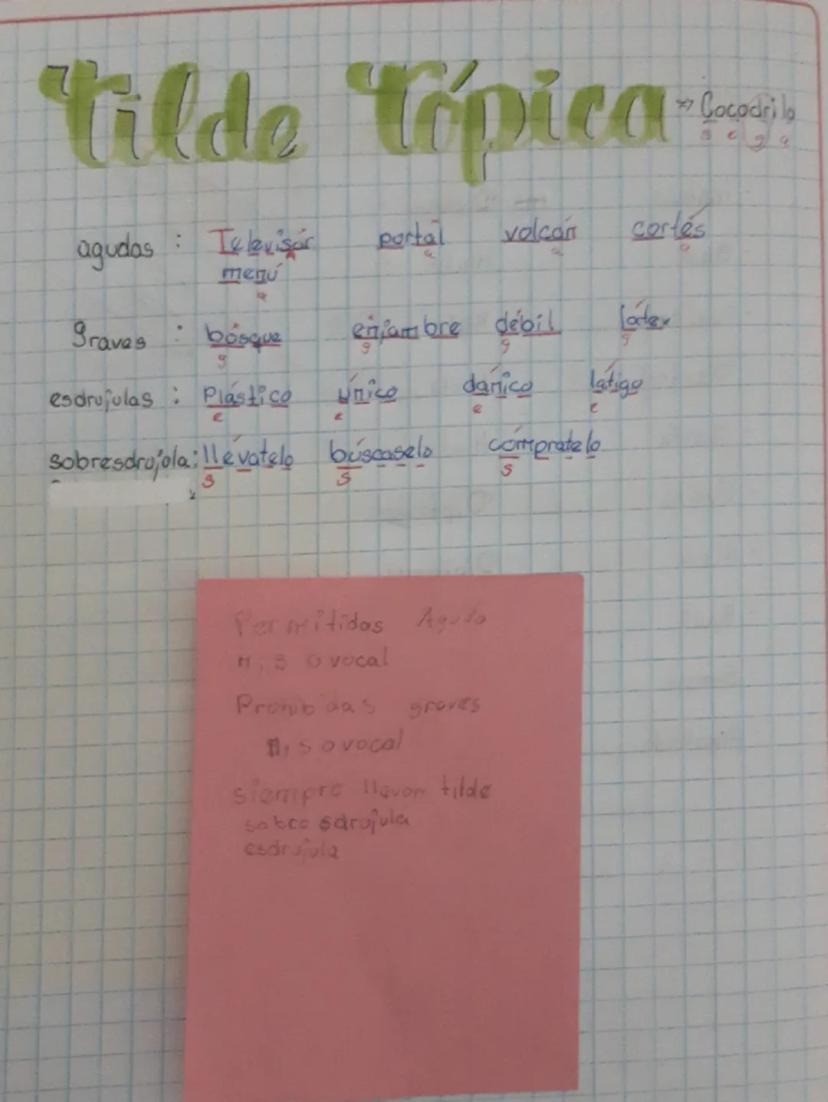 Tilde Tópica → Cocodrilo
s e g a
agudas : Televisár portál volcán cortés
a a a
menú
a
graves : bósque enjambre débil látex
g g g g
esdrujulas : Plástico único dánico látigo
e e e e
sobresdrujola: llévatelo búscaselo cómpratelo
s s s
Permitidas Aguda
n, s o vocal
Prohibidas graves
n, s o vocal
siempre llevan tilde
sobre sdrujula
esdrujula